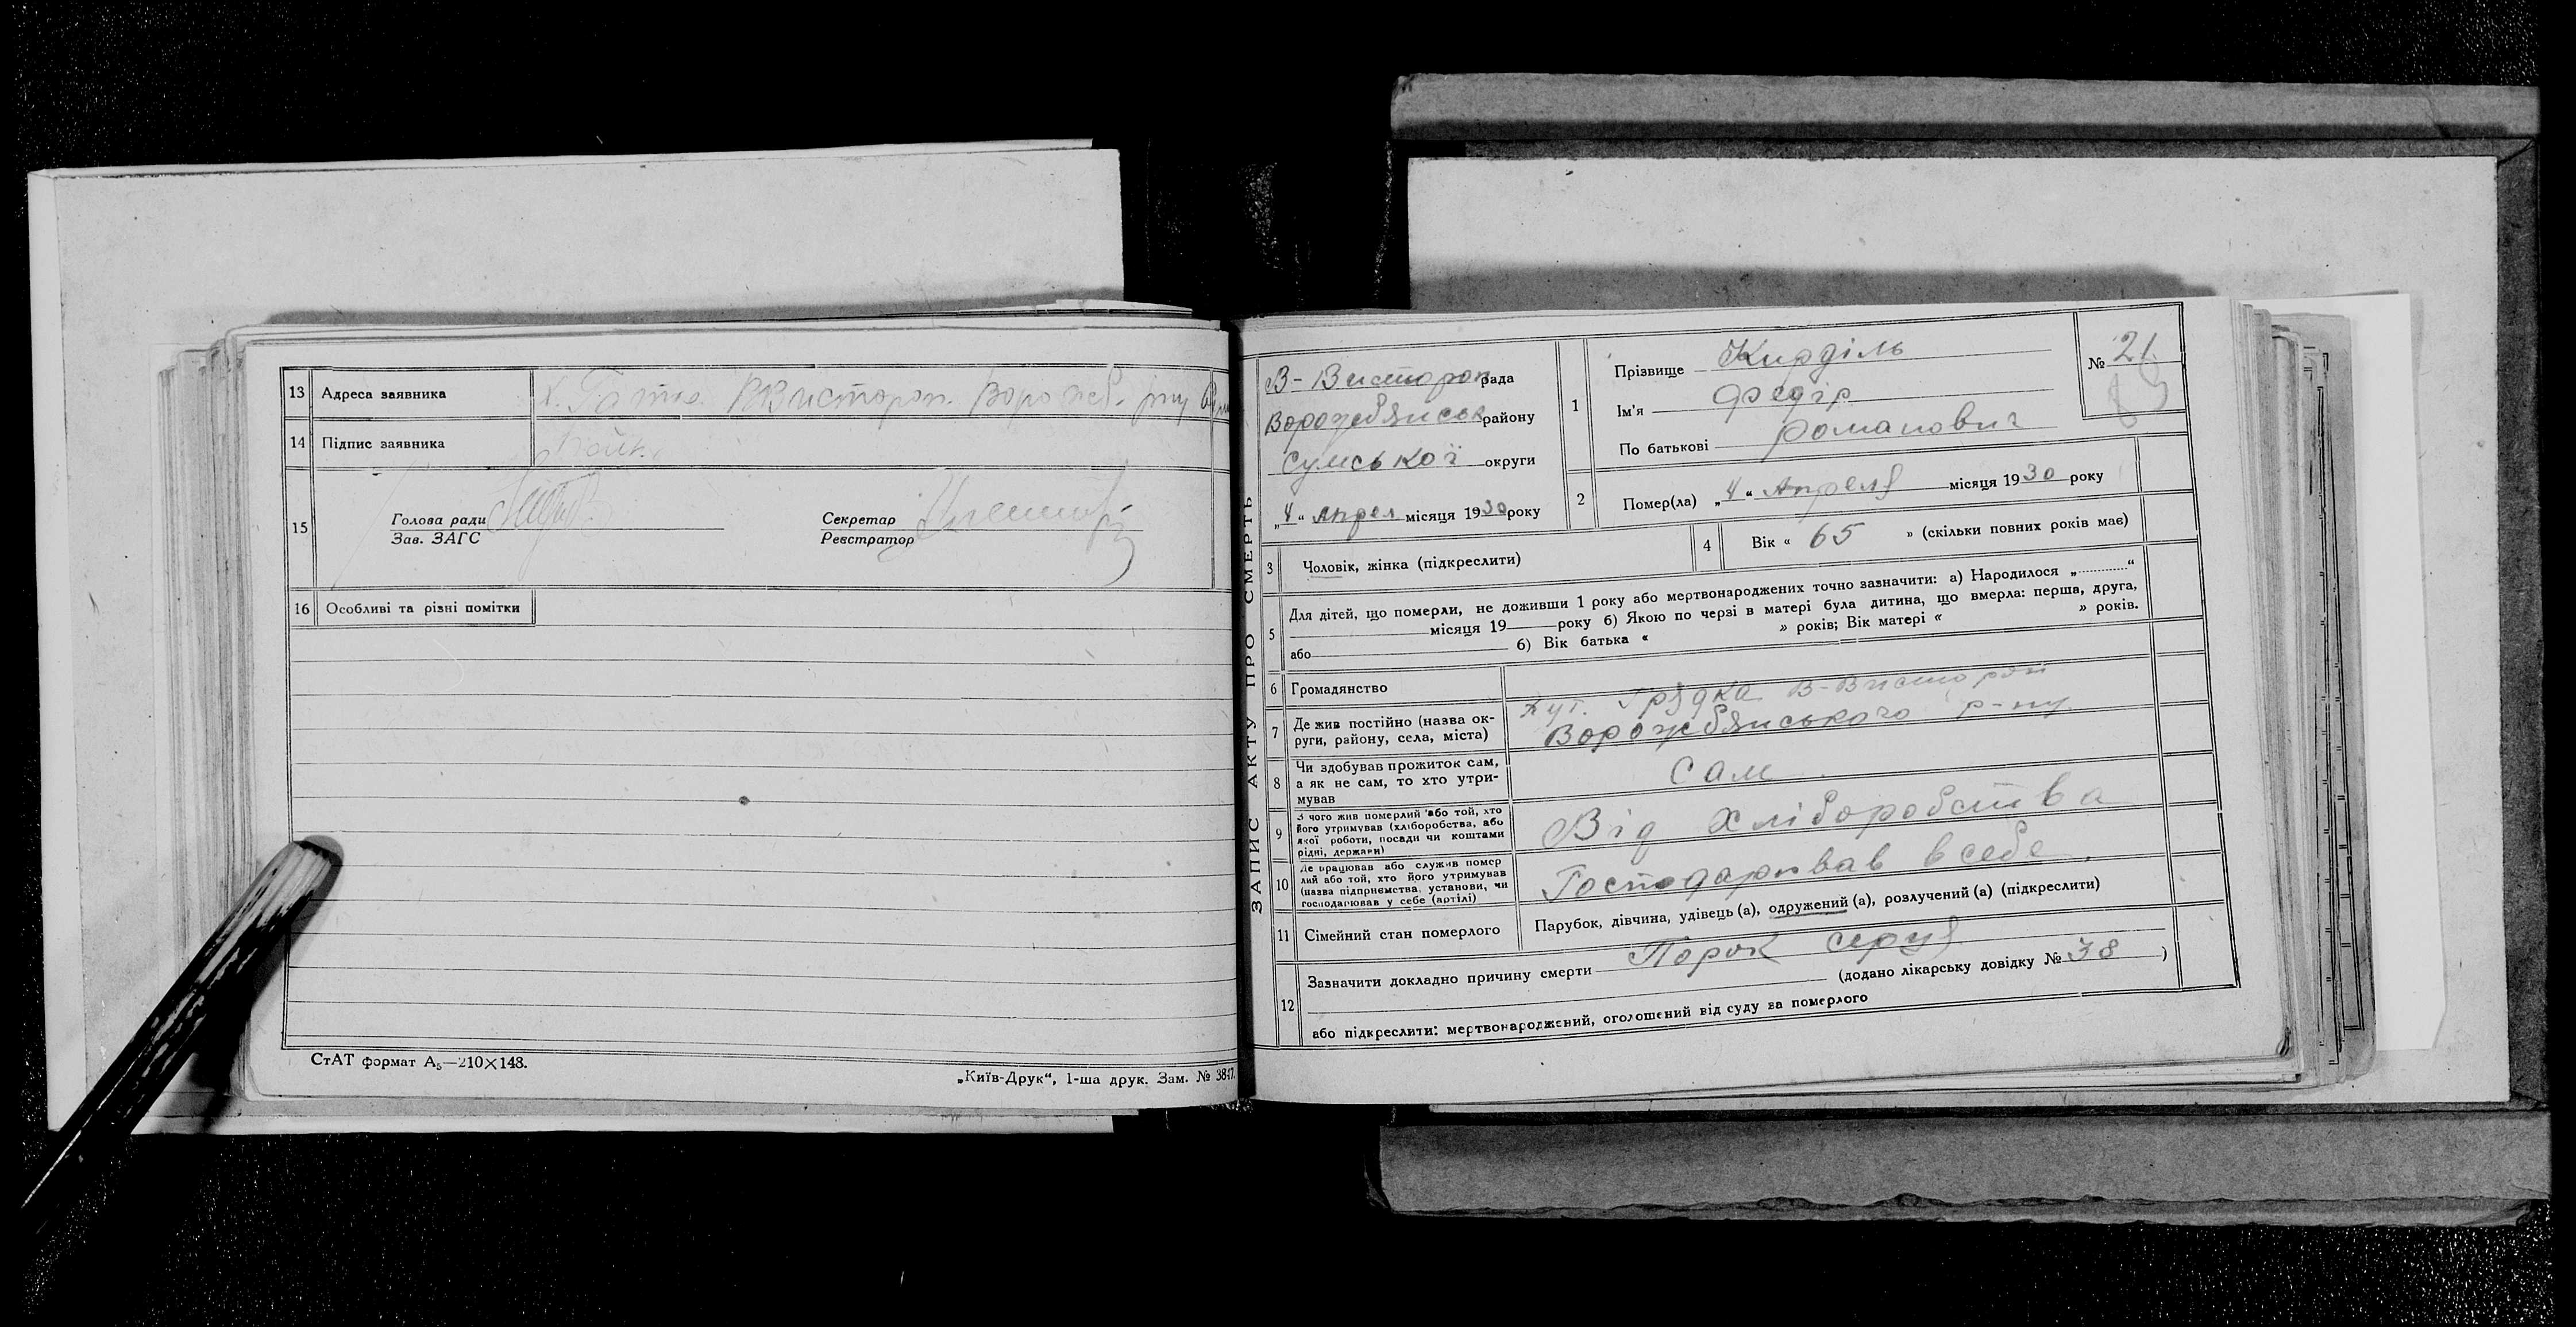 13 Адреса заявника
14 Підпис заявника
15 Голова ради
Зав. ЗАГС
Секретар
Реєстратор
16 Особливі та різні помітки
СтАТ формат А₅—210×148.
„Київ-Друк“, 1-ша друк. Зам. № 3847.
ЗАПИС АКТУ ПРО СМЕРТЬ
В-Висторопрада
Ворожбянськ району
Сумської округи
„4“ Апрел місяця 1930 року
1 Прізвище Кирділь
Ім'я Федір
По батькові Романович
№ 21
2 Помер(ла) „4“ Апреля місяця 1930 року
3 Чоловік, жінка (підкреслити)
4 Вік « 65 » (скільки повних років має)
5 Для дітей, що померли, не доживши 1 року або мертвонароджених точно зазначити: а) Народилося „............“
місяця 19 року б) Якою по черзі в матері була дитина, що вмерла: перша, друга,
або б) Вік батька « » років; Вік матері « » років.
6 Громадянство
7 Де жив постійно (назва ок-
руги, району, села, міста)
Хут. Грядка В-Висторопі
Ворожбянського р-ну
8 Чи здобував прожиток сам,
а як не сам, то хто утри-
мував
Сам
9 З чого жив померлий або той, хто
його утримував (хліборобства, або
якої роботи, посади чи коштами
рідні, держави)
Від Хліборобства
10 Де працював або служив помер
лий або той, хто його утримував
(назва підприємства, установи, чи
господарював у себе (артілі)
Господарював в себе.
11 Сімейний стан померлого
Парубок, дівчина, удівець (а), одружений (а), розлучений (а) (підкреслити)
12 Зазначити докладно причину смерти Порок серця
(додано лікарську довідку № 38 )
або підкреслити: мертвонароджений, оголошений від суду за померлого